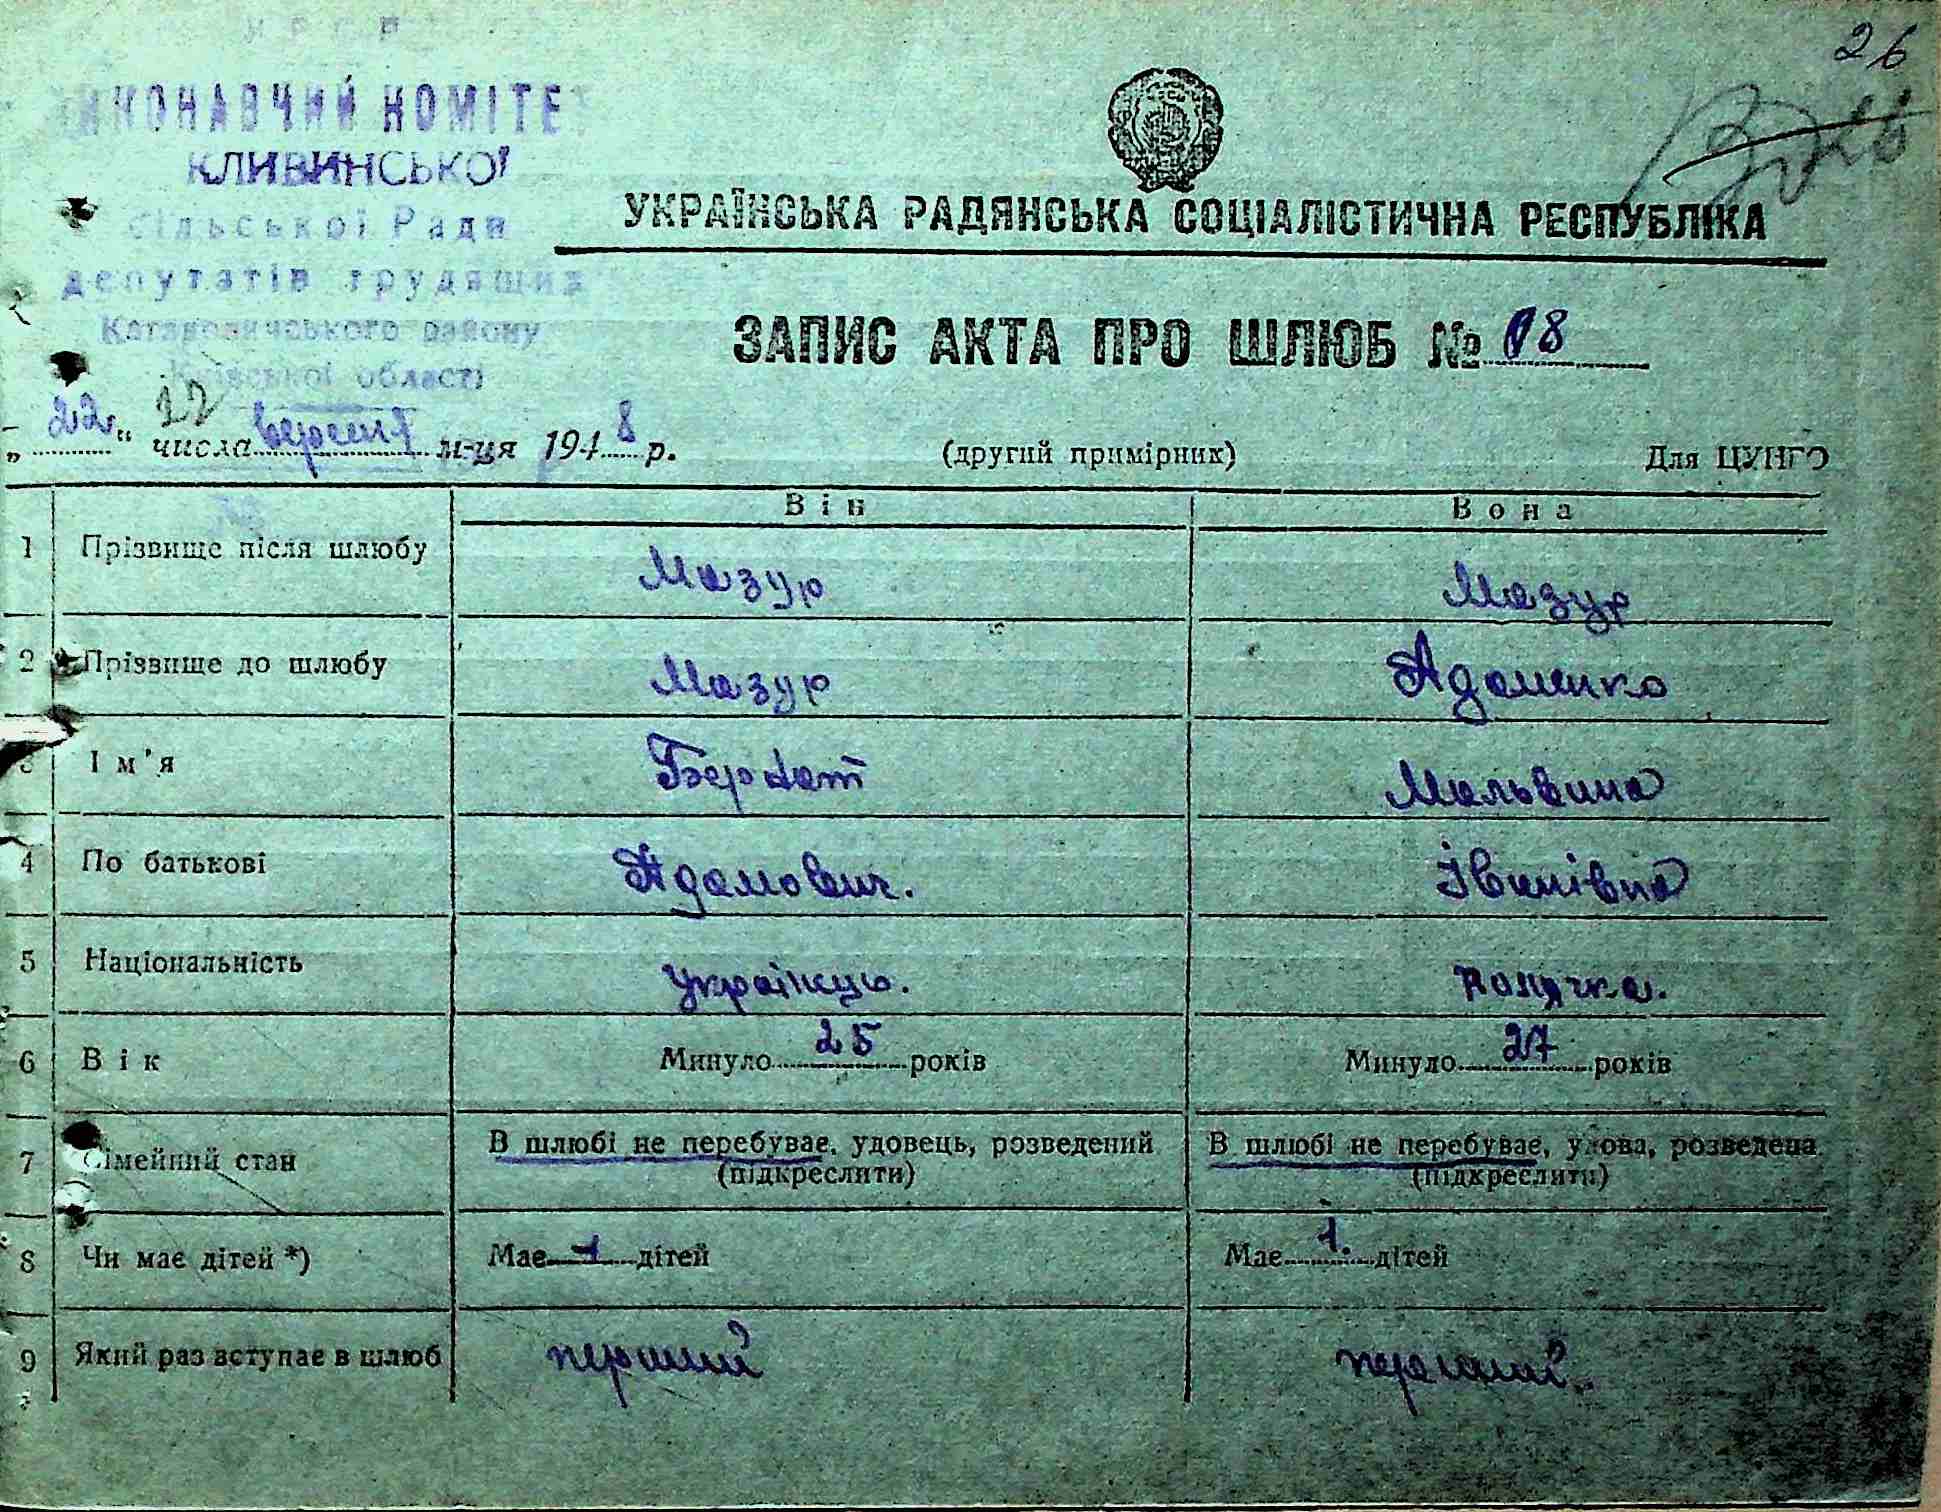 УРСР
ВИКОНАВЧИЙ КОМІТЕТ
КЛИВИНСЬКОЇ
Сільської Ради
депутатів трудящих
Кагановичського району
Київської області
26
УКРАЇНСЬКА РАДЯНСЬКА СОЦІАЛІСТИЧНА РЕСПУБЛІКА
ЗАПИС АКТА ПРО ШЛЮБ № 18
22
„ 22 “ числа вересня м-ця 1948 р. (другий примірник) Для ЦУНГО
Він Вона
1 Прізвище після шлюбу Мазур Мазур
2 Прізвище до шлюбу Мазур Адаменко
3 Ім'я Мальвина
4 По батькові Адамович. Іванівна
5 Національність українець. полячка.
6 Вік Минуло 25 років Минуло 27 років
7 Сімейний стан В шлюбі не перебуває, удовець, розведений В шлюбі не перебуває, удова, розведена
(підкреслити) (підкреслити)
8 Чи має дітей *) Має 1 дітей Має 1. дітей
9 Який раз вступає в шлюб перший перший